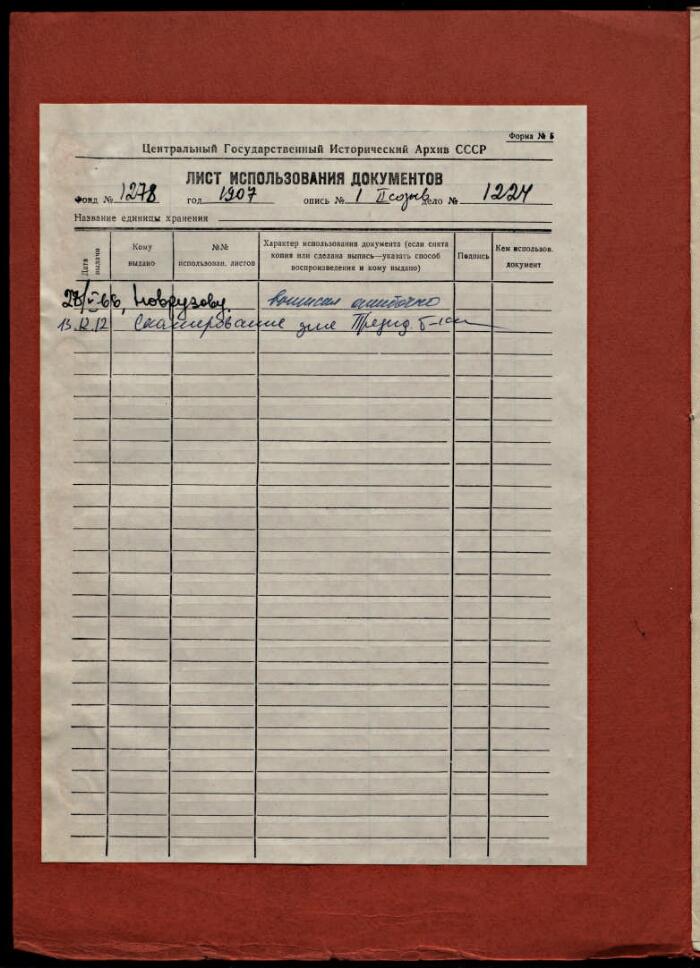 Форма № 5
Центральный Государственный Исторический Архив СССР
ЛИСТ ИСПОЛЬЗОВАНИЯ ДОКУМЕНТОВ
Фонд № 1278 год 1907 опись № 1 II созыв дело № 1224
Название единицы хранения
Дата выдачи
Кому выдано
№№ использован. листов
Характер использования документа (если снята копия или сделана выпись—указать способ воспроизведения и кому выдано)
Подпись
Кем использов. документ
Новрузову. выписан ошибочно
13.12.12 Сканирование для Презид. б-ки